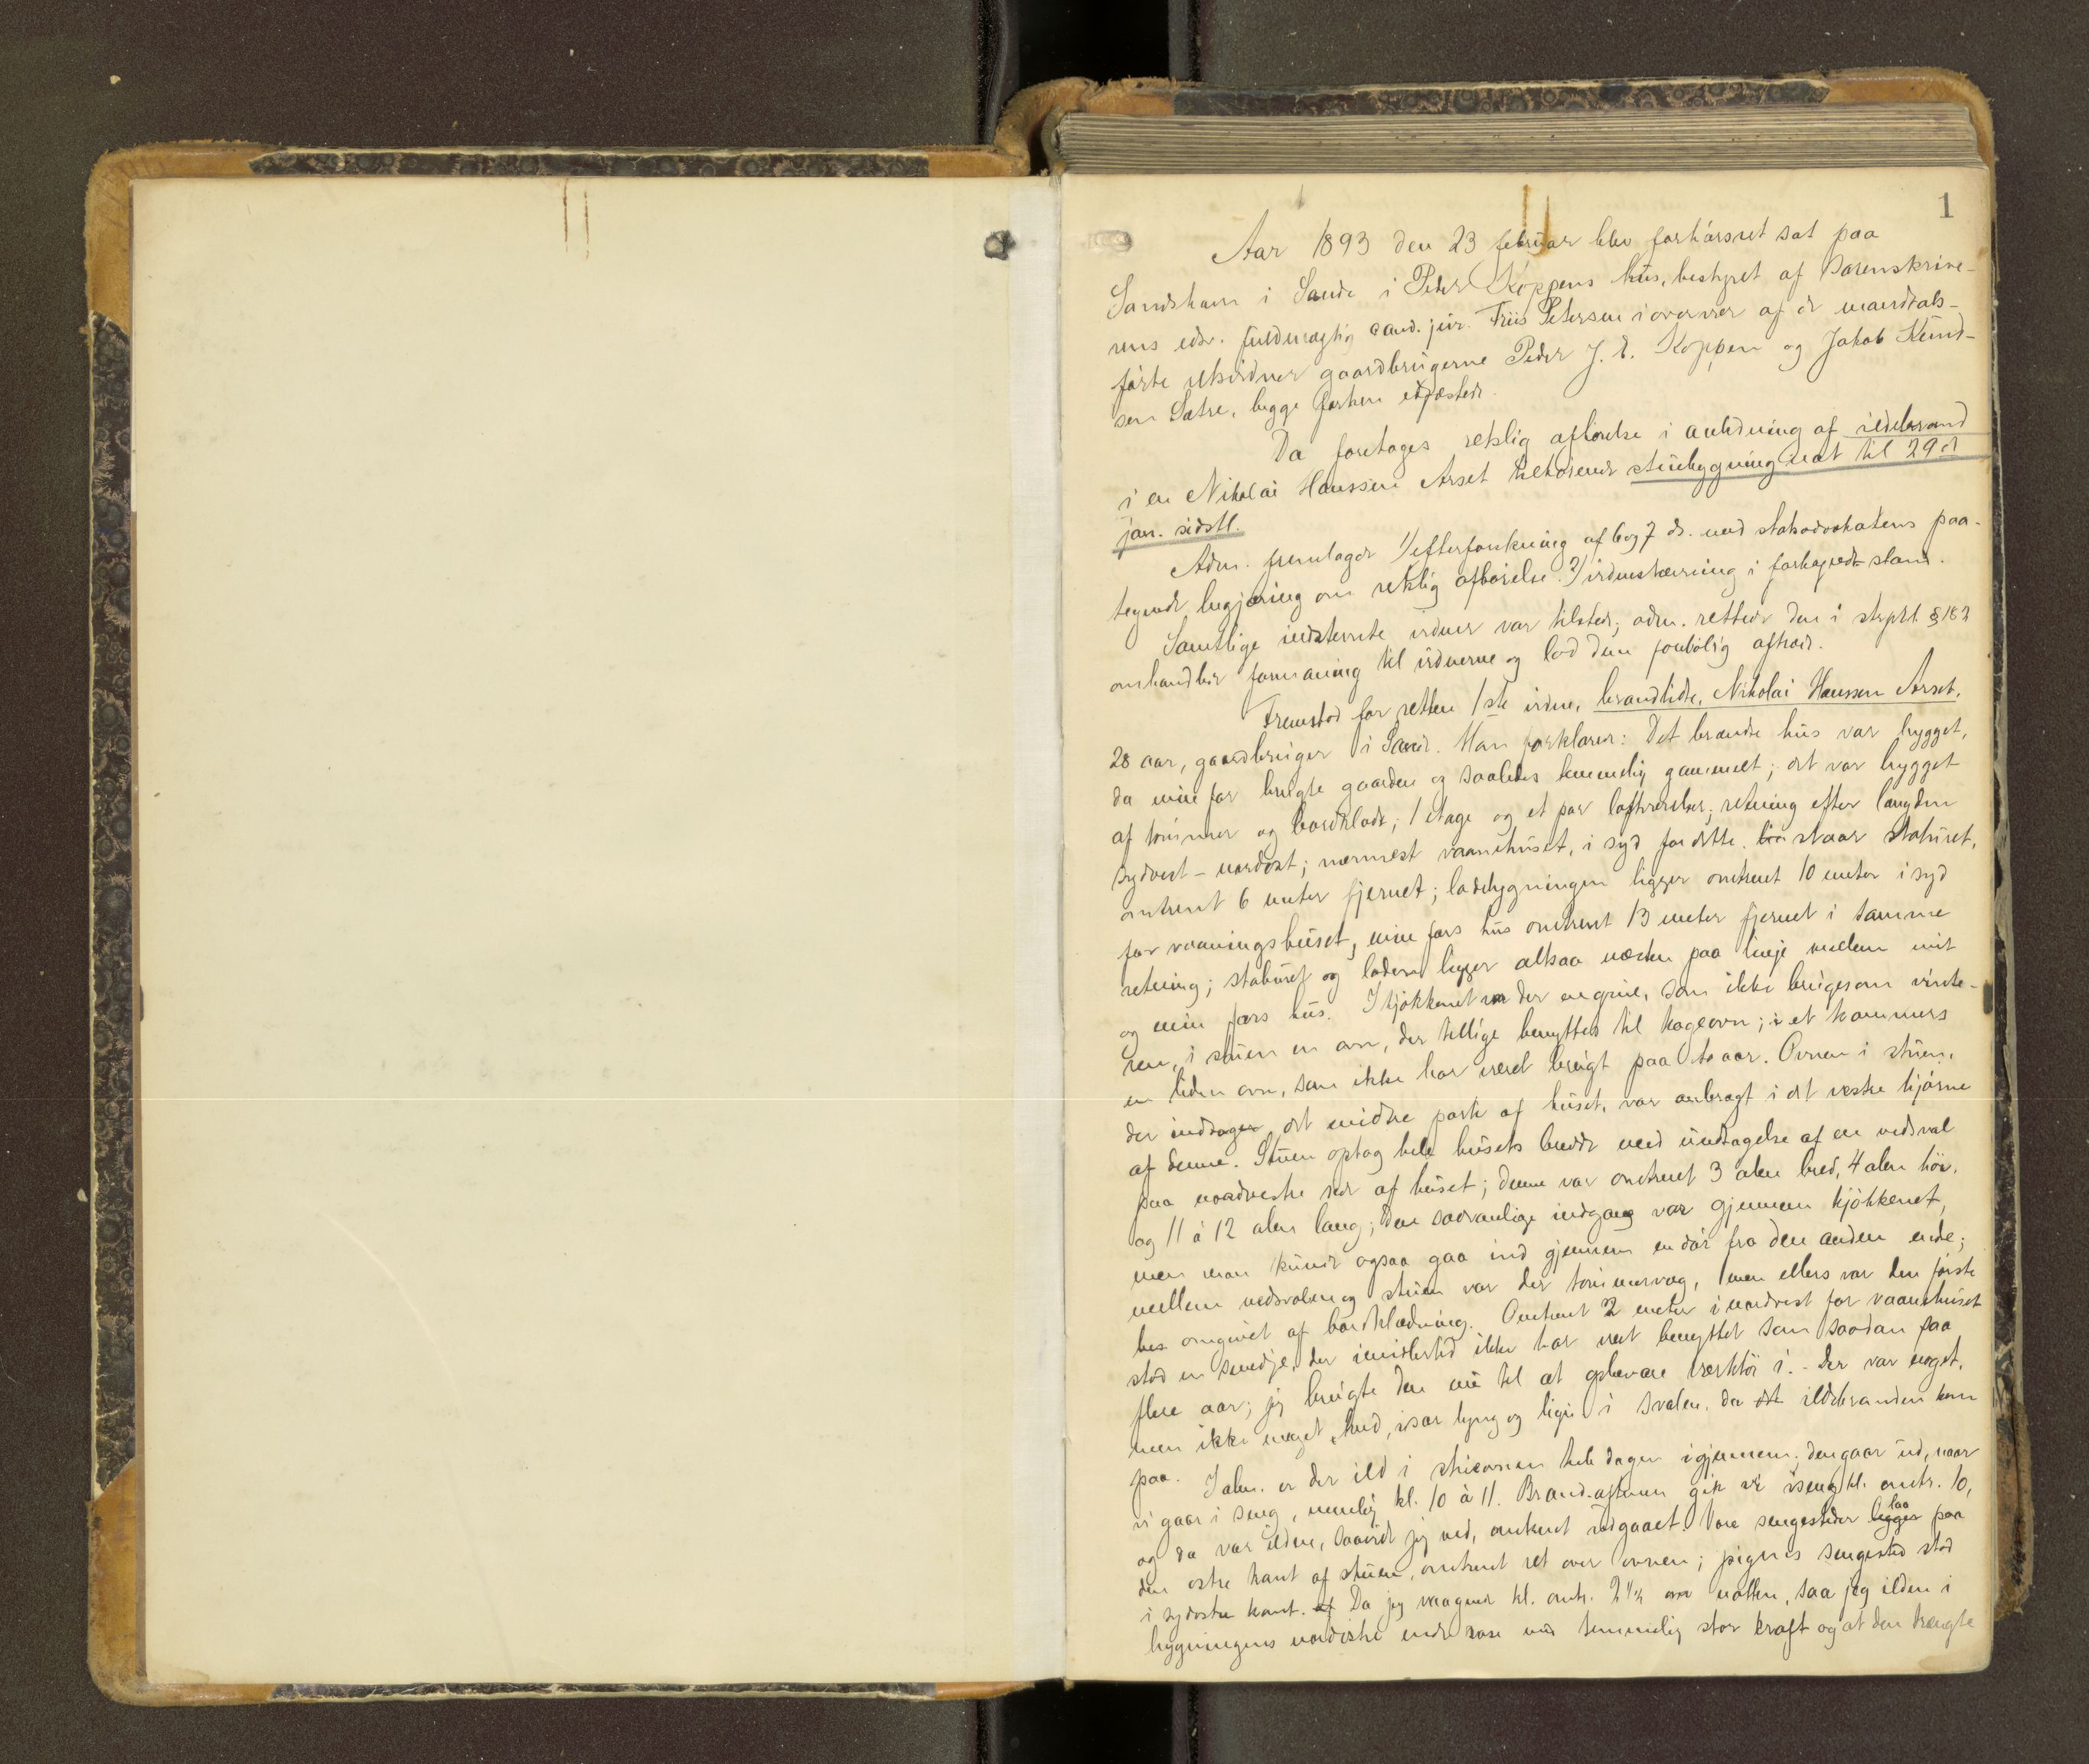 1
Aar 1893 den 23 februar blev forhörsret sat paa
Sandshavn i Sande i Peder Koppens hus, bestyret af sorenskrive-
rens edsv. fuldmægtig cand. jur. Friis Petersen i overvær af de mandtals-
førte retsvidner gaardbrugerne Peder J. E. Koppen og Jakob Knud-
sen Sætre, begge forhen edfæstede.
Da foretages retslig afhørelse i anledning af ildebrand
i en Nikolai Hanssen Arset tilhørende stuebygning nat til 29de
jan. sidstl.
Adm. fremlagde 1/ efterforskning af 6 og 7 ds. med statsadvokatens paa-
tegnede begjæring om retslig afhørelse. 2/ vidnestævning i forkyndt stand.
Samtlige indstevnte vidner var tilstede; adm. rettede den i strprl. § 182
omhandlede formaning til vidnerne og lod dem foreløbig aftræde.
Fremstod for retten 1ste vidne, brandlidte, Nikolai Hanssen Arset,
28 aar, gaardbruger i Sande. Han forklarer: Det brændte hus var bygget,
da min far brugte gaarden og saaledes temmelig gammelt; det var bygget
af tømmer og bordklædt; 1 etage og et par loftværelser; retning efter længden
sydvest - nordøst; nærmest vaanehuset, i syd for dette staar staburet,
omtrent 6 meter fjernet; ladebygningen ligger omtrent 10 meter i syd
for vaaningshuset, min fars hus omtrent 13 meter fjernet i samme
retning; staburet og laden ligger altsaa næsten paa linje mellem mit
og min fars hus. I kjøkkenet var der en grue, som ikke bruges om vinte-
ren, i stuen en ovn, der tillige benyttes til kogeovn; i et kammers
en liden ovn, som ikke har været brugt paa to aar. Ovnen i stuen,
der indtager det midtre parti af huset, var anbragt i det vestre hjørne
af denne. Stuen optog hele husets bredde med undtagelse af en vedsval
paa nordvestre side af huset; denne var omtrent 3 alen bred, 4 alen høi,
og 11 à 12 alen lang; den sædvanlige indgang var gjennem kjøkkenet,
men man kunde ogsaa gaa ind gjennem en dør fra den anden ende;
mellem vedsvalen og stuen var der tømmervæg, men ellers var den første
bes omgivet af bordklædning. Omtrent 2 meter i nordvest for vaanehuset
stod en smedje, der imidlertid ikke har vært benyttet som saadan paa
flere aar; jeg brugte den nu til at opbevare værktøi i. - Der var noget,
men ikke meget, ved, især lyng og lign. i svalen, da ildebranden kom
paa. I alm. er der ild i stueovnen hele dagen igjennem; den gaar ud, naar
vi gaar i seng, nemlig kl. 10 à 11. Brand-aftenen gik vi iseng kl. omtr. 10,
og da var ilden, saavidt jeg ved, omtrent udgaaet. Vore sengesteder laa paa
den østre kant af stuen, omtrent ret over ovnen; pigens sengested stod
i sydøstre kant. Da jeg vaagnede kl. omtr. 2 1/2 om natten, saa jeg ilden i
bygningens nordøstre ende rase med temmelig stor kraft og at den trængte